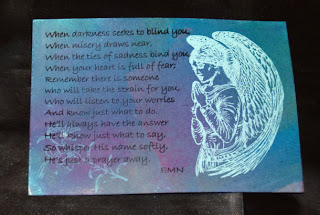 When darkness seeks to blind you,
When misery draws near,
When the ties of sadness bind you,
When your heart is full of fear;
Remember there is someone
who will take the strain for you,
Who will listen to your worries
And know just what to do.
He'll always have the answer
He'll know just what to say,
So whisper His name softly,
He's just a prayer away.
EMN